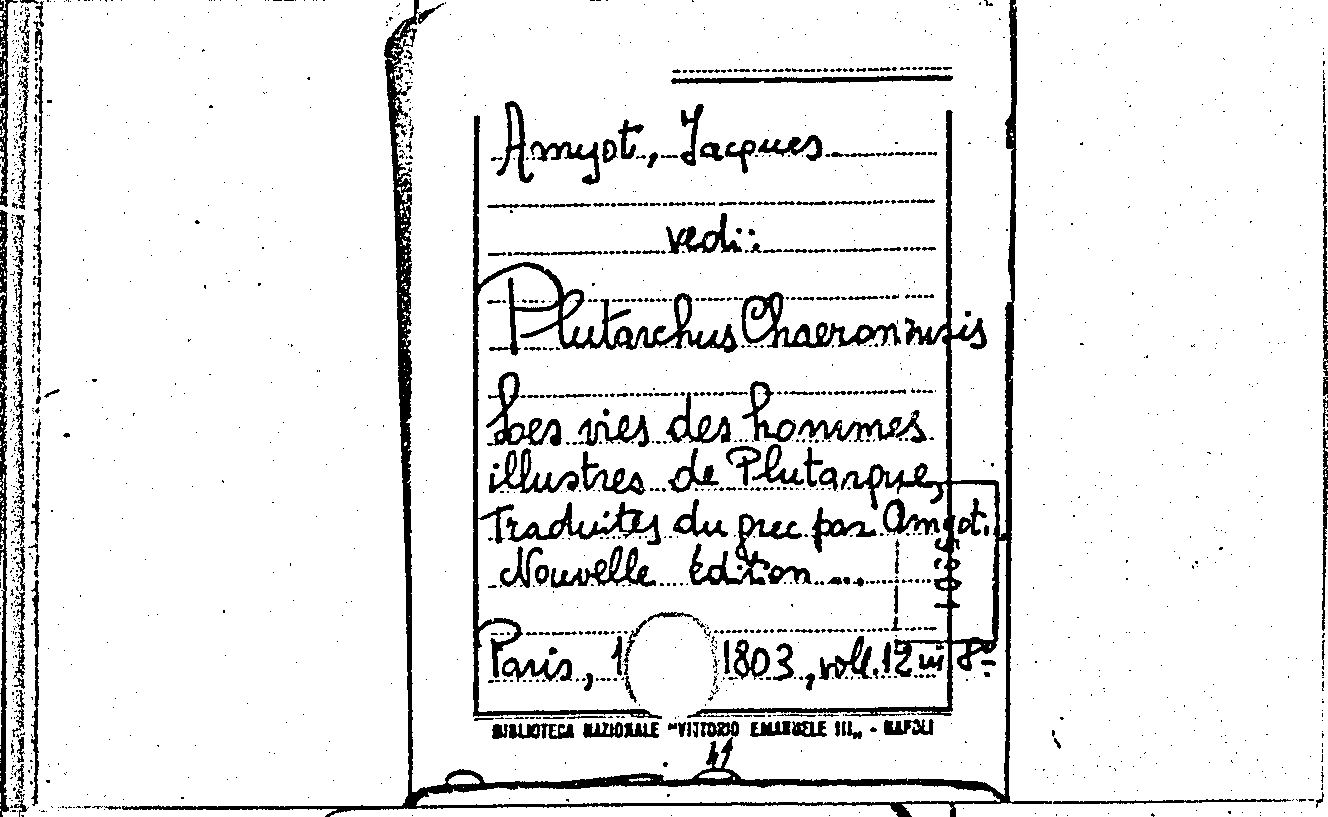 Amyot, Jacques
vedi:
Plutarchus Chaeronensis
Les vies des hommes
illustres de Plutarque,
Traduites du grec par Amyot.
Nouvelle édition ...
Paris, 1 1803, voll. 12 in 8º
BIBLIOTECA NAZIONALE "VITTORIO EMANUELE III„ - NAPOLI